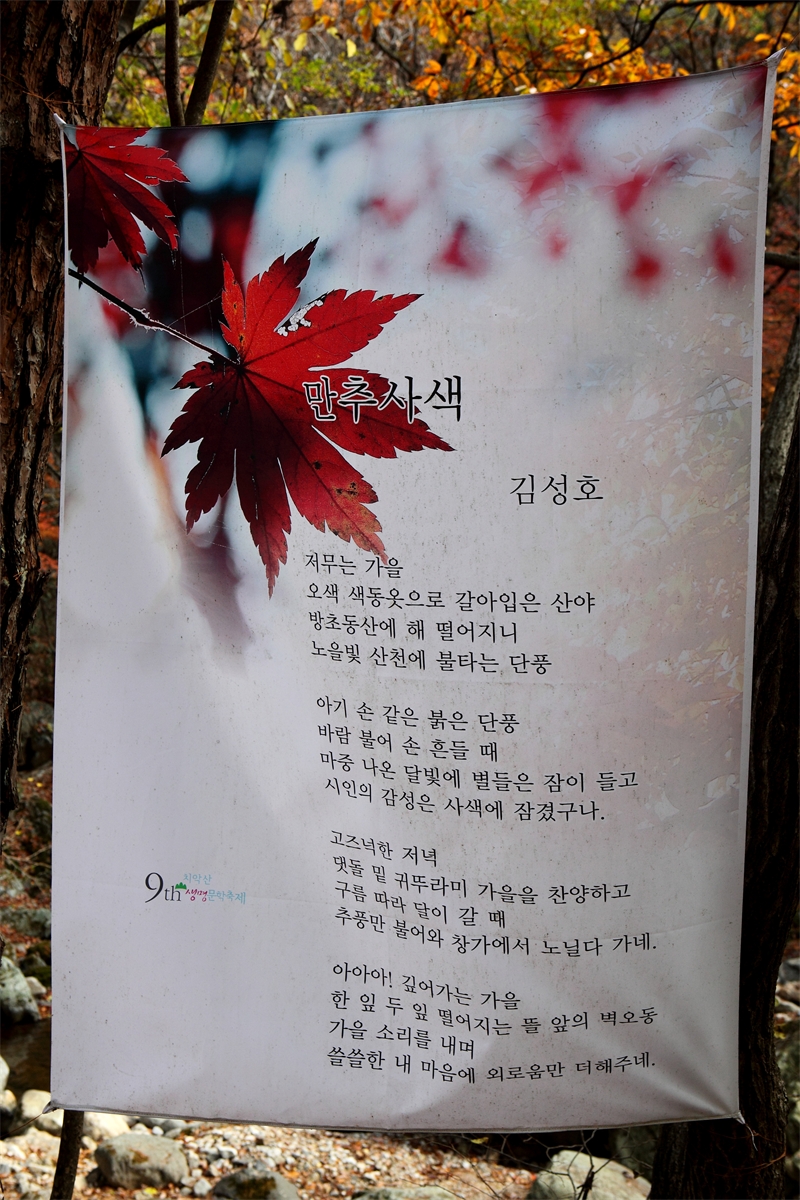 만추사색
김성호
저무는 가을
오색 색동옷으로 갈아입은 산야
방초동산에 해 떨어지니
노을빛 산천에 불타는 단풍
아기 손 같은 붉은 단풍
바람 불어 손 흔들 때
마중 나온 달빛에 별들은 잠이 들고
시인의 감성은 사색에 잠겼구나.
고즈넉한 저녁
댓돌 밑 귀뚜라미 가을을 찬양하고
구름 따라 달이 갈 때
추풍만 불어와 창가에서 노닐다 가네.
아아아! 깊어가는 가을
한 잎 두 잎 떨어지는 뜰 앞의 벽오동
가을 소리를 내며
쓸쓸한 내 마음에 외로움만 더해주네.
치악산
9th 생명문학축제